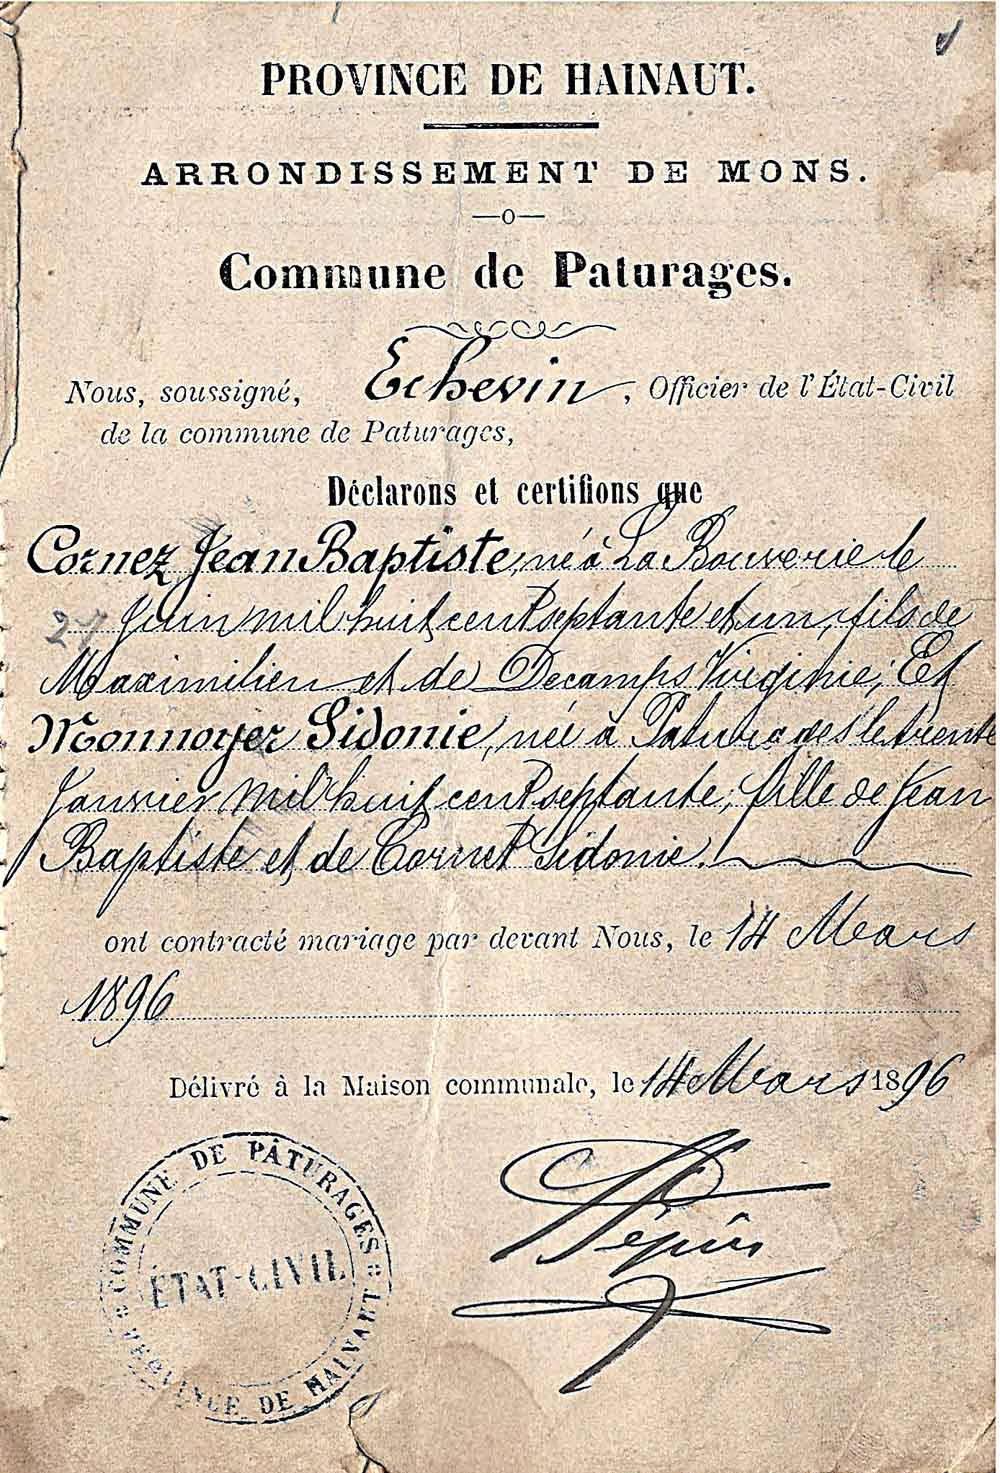 PROVINCE DE HAINAUT.
ARRONDISSEMENT DE MONS.
—o—
Commune de Paturages.
Nous, soussigné, Echevin, Officier de l'État-Civil
de la commune de Paturages,
Déclarons et certifions que
Cornez Jean Baptiste, né à La Bouverie le
27 Juin mil huit cent septante et un, fils de
Maximilien et de Decamps Virginie; Et
Monnoyer Sidonie, née à Paturages le trente
Janvier mil huit cent septante; fille de Jean
Baptiste et de Cornet Sidonie.
ont contracté mariage par devant Nous, le 14 Mars
1896
Délivré à la Maison communale, le 14 Mars 1896
COMMUNE DE PÂTURAGES
ÉTAT-CIVIL
PROVINCE DE HAINAUT